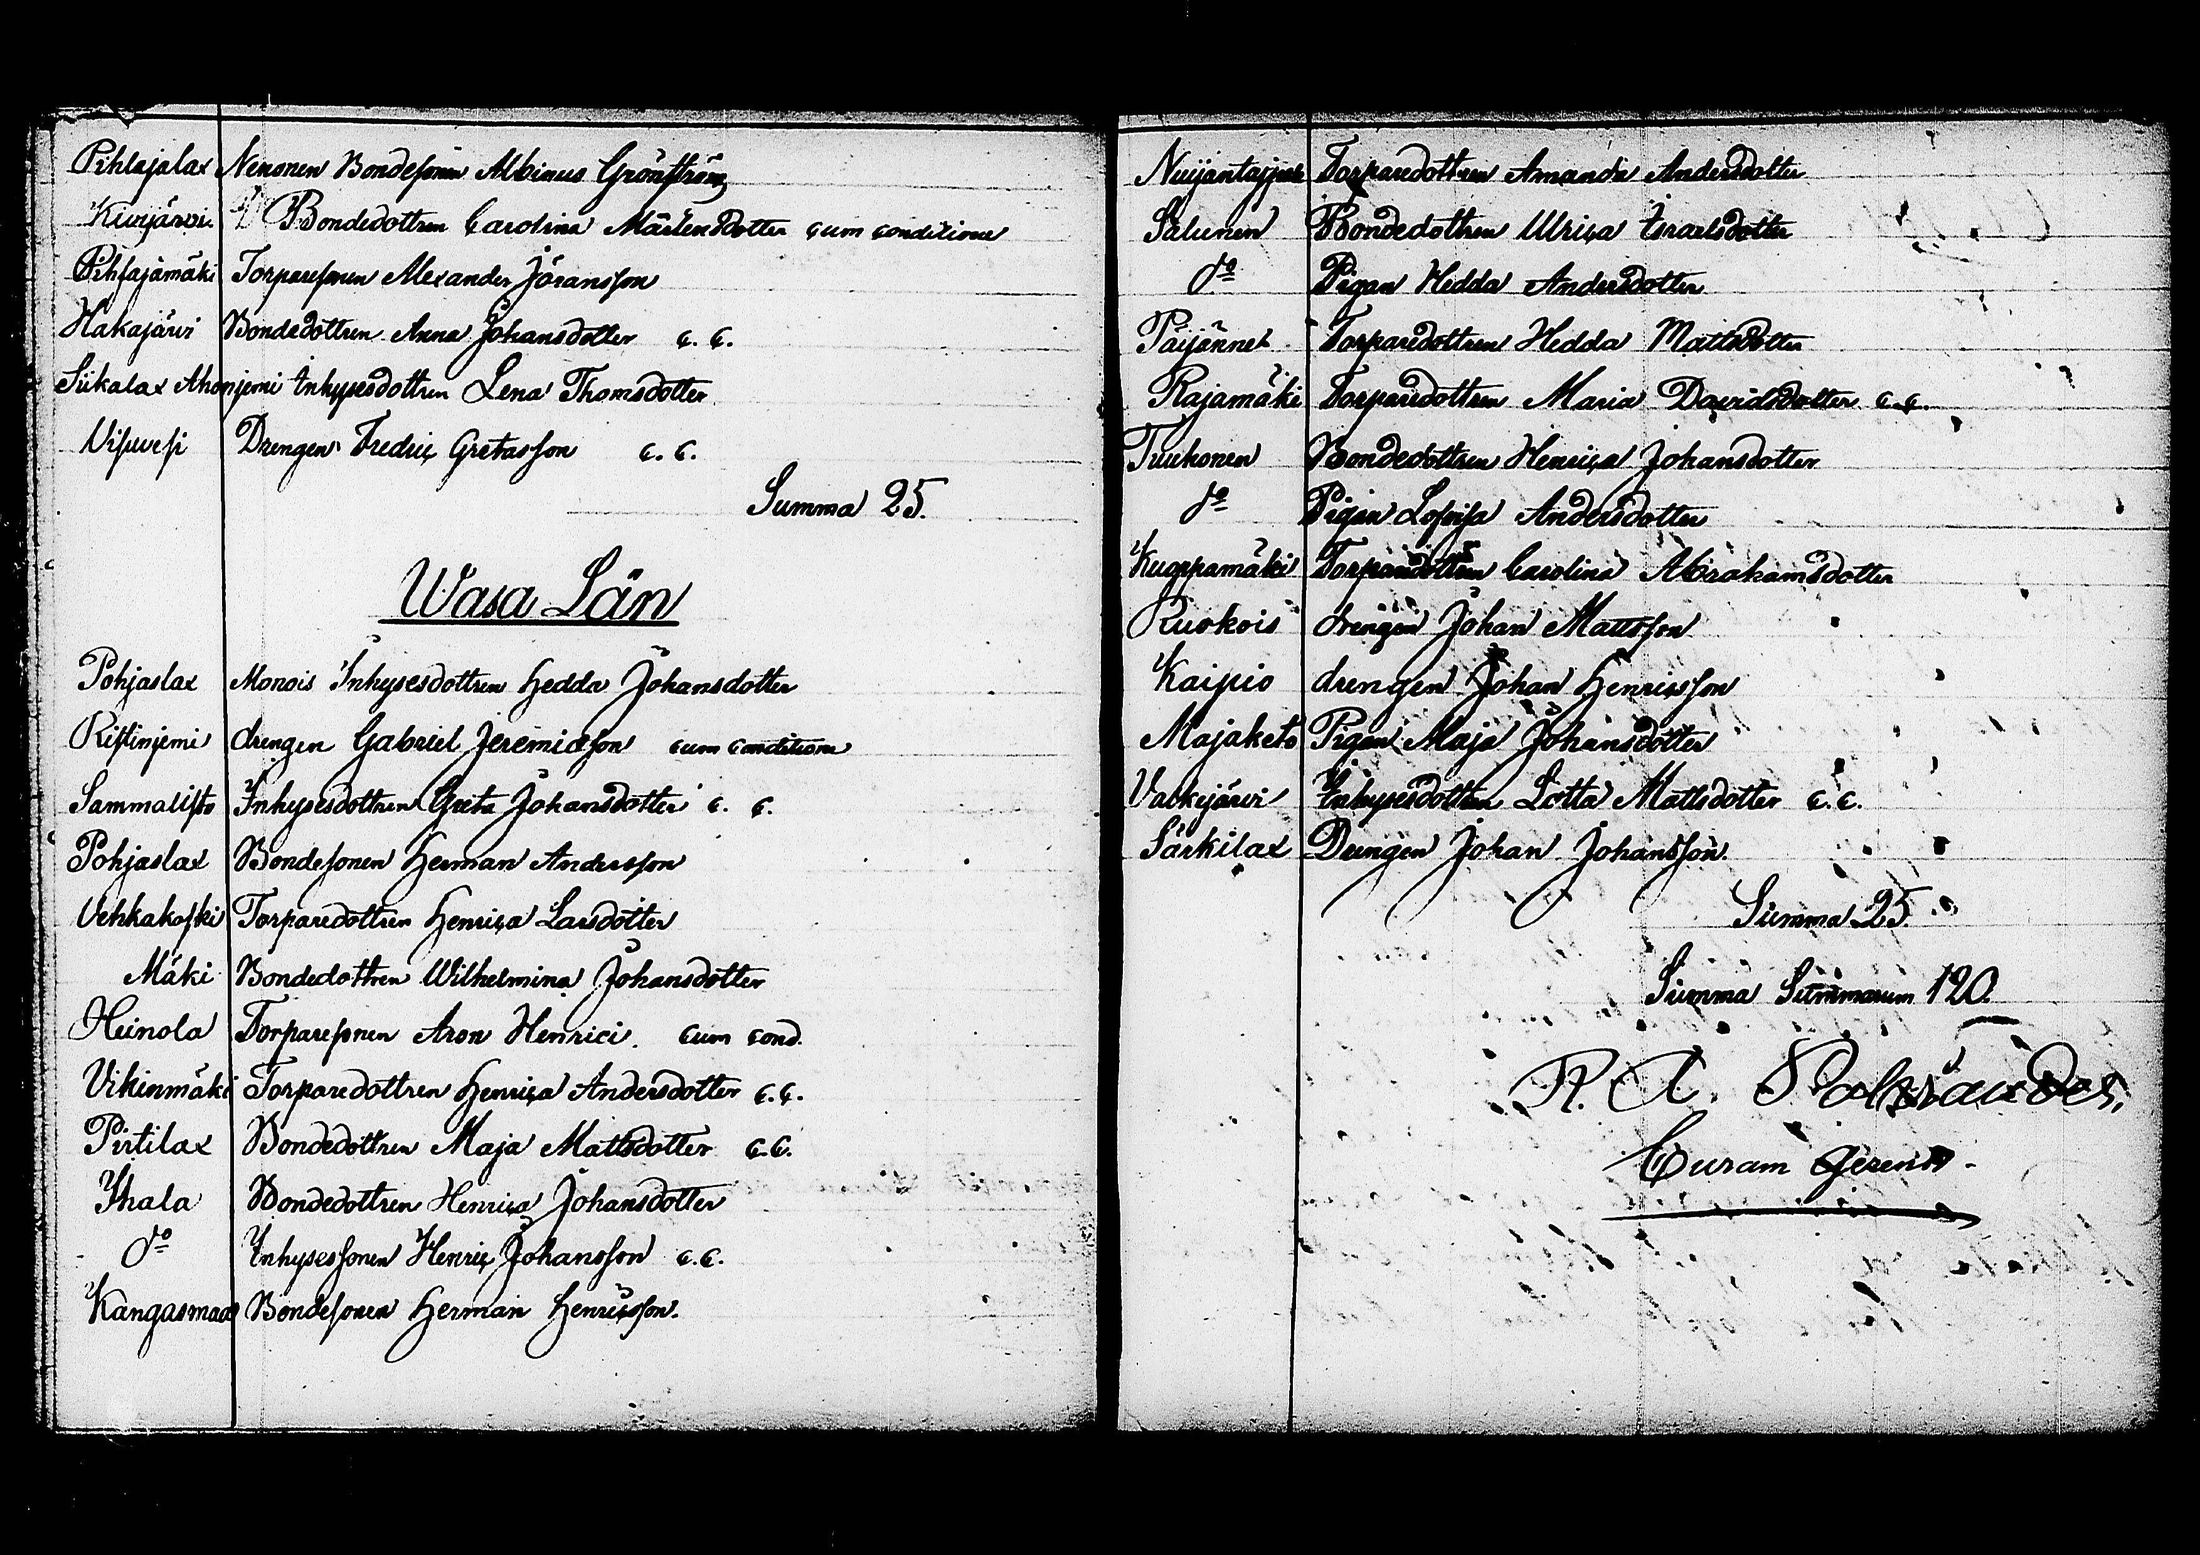 Pihlajalax Nenonen Bondesonen Albinus Grönström
Kivijärvi Bondedottren Carolina Mårtensdotter cum conditione
Pihlajamäki Torparesonen Alexander Jöransson
Hakajärvi Bondedottren Anna Johansdotter c. c.
Siikalax Ahonjemi Inhysesdottren Lena Thomsdotter
Visuvesi Drengen Fredric Gretasson c. c.
Summa 25.
Wasa Län
Pohjaslax Monois Inhysesdottren Hedda Johansdotter
Ristinjemi drengen Gabriel Jeremiæson cum conditione
Sammalisto Inhysesdottren Greta Johansdotter c. c.
Pohjaslax Bondesonen Herman Andersson
Vehkakoski Torparedottren Henrica Larsdotter
Mäki Bondedottren Wilhelmina Johansdotter
Heinola Torparesonen Aron Henrici. cum cond.
Vikinmäki Torparedottren Henrica Andersdotter c.c.
Pirtilax Bondedottren Maja Mattsdotter c.c.
Ihala Bondedottren Henrica Johansdotter
do Inhysessonen Henric Johansson c.c.
Kangasmaa Bondesonen Herman Henricsson.
Torparedottren Amanda Andersdotter
Salunen Bondedottren Ulrica Israelsdotter
do Pigan Hedda Andersdotter
Päijännet Torparedottren Hedda Mattsdotter
Rajamäki Torparedottren Maria Davidsdotter c.c.
Tuukonen Bondedottren Henrica Johansdotter
do Pigan Lovisa Andersdotter
Kugppamäki Torparedottren Carolina Abrahamsdotter
Ruokois drengen Johan Mattsson
Kaipio drengen Johan Henricsson
Majaketo Pigan Maja Johansdotter
Valkejärvi Inhysesdottren Lotta Mattsdotter c.c.
Särkilax Drengen Johan Johansson.
Summa 25.
Summa Summarum 120.
Curam gerens.